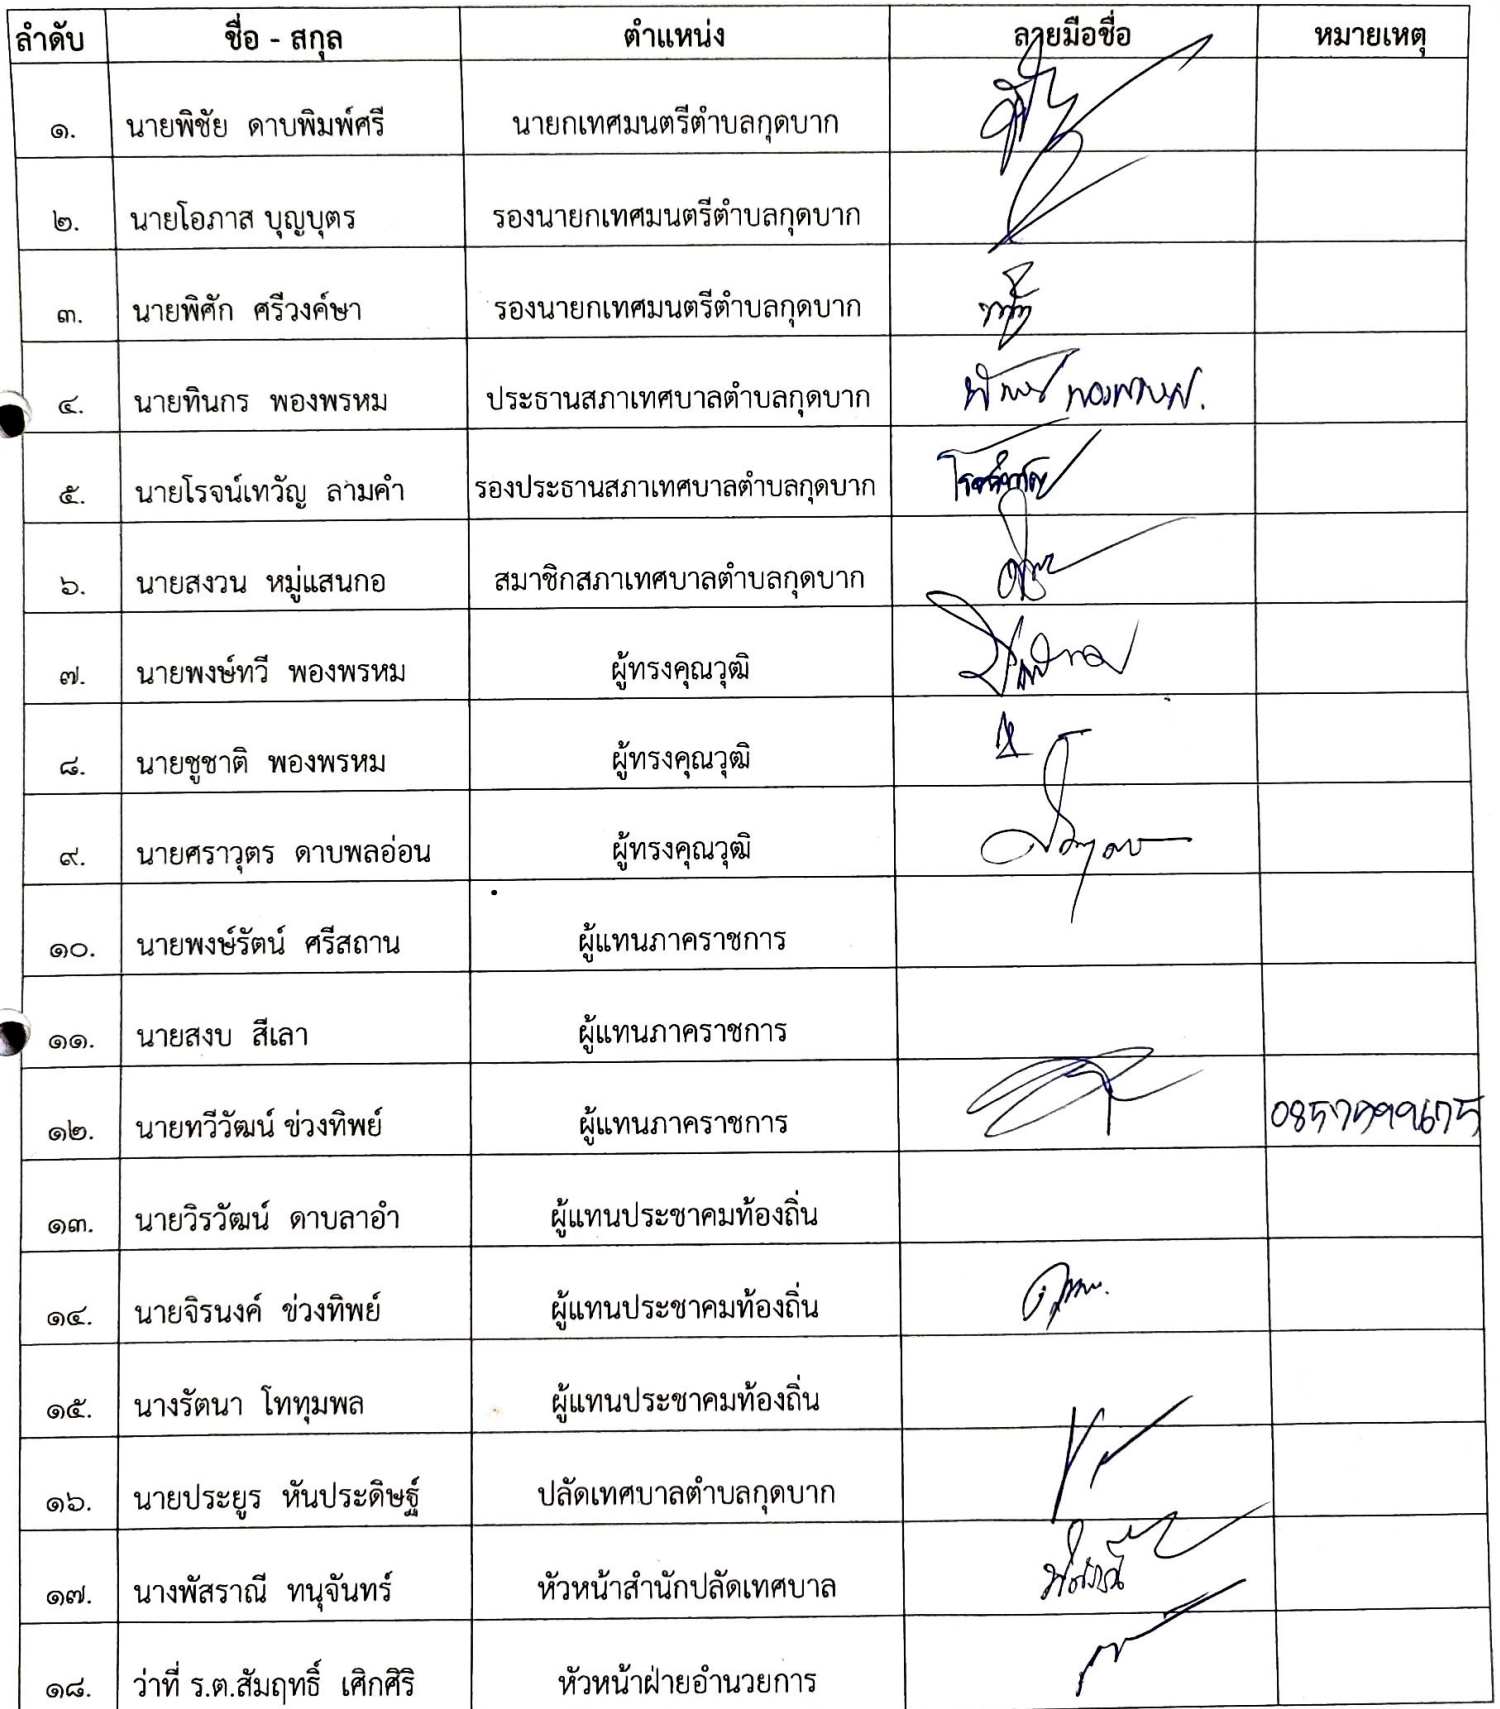 ลำดับ ชื่อ - สกุล ตำแหน่ง ลายมือชื่อ หมายเหตุ
๑. นายพิชัย ดาบพิมพ์ศรี นายกเทศมนตรีตำบลกุดบาก
๒. นายโอภาส บุญบุตร รองนายกเทศมนตรีตำบลกุดบาก
๓. นายพิศัก ศรีวงค์ษา รองนายกเทศมนตรีตำบลกุดบาก
๔. นายทินกร พองพรหม ประธานสภาเทศบาลตำบลกุดบาก
๕. นายโรจน์เทวัญ ลามคำ รองประธานสภาเทศบาลตำบลกุดบาก
๖. นายสงวน หมู่แสนกอ สมาชิกสภาเทศบาลตำบลกุดบาก
๗. นายพงษ์ทวี พองพรหม ผู้ทรงคุณวุฒิ
๘. นายชูชาติ พองพรหม ผู้ทรงคุณวุฒิ
๙. นายศราวุตร ดาบพลอ่อน ผู้ทรงคุณวุฒิ
๑๐. นายพงษ์รัตน์ ศรีสถาน ผู้แทนภาคราชการ
๑๑. นายสงบ สีเลา ผู้แทนภาคราชการ
๑๒. นายทวีวัฒน์ ข่วงทิพย์ ผู้แทนภาคราชการ
๑๓. นายวิรวัฒน์ ดาบลาอำ ผู้แทนประชาคมท้องถิ่น
๑๔. นายจิรนงค์ ข่วงทิพย์ ผู้แทนประชาคมท้องถิ่น
๑๕. นางรัตนา โททุมพล ผู้แทนประชาคมท้องถิ่น
๑๖. นายประยูร หันประดิษฐ์ ปลัดเทศบาลตำบลกุดบาก
๑๗. นางพัสราณี ทนุจันทร์ หัวหน้าสำนักปลัดเทศบาล
๑๘. ว่าที่ ร.ต.สัมฤทธิ์ เศิกศิริ หัวหน้าฝ่ายอำนวยการ